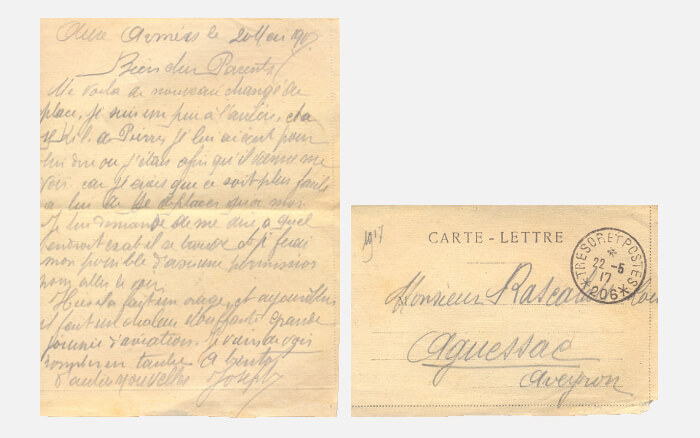 Aux Armées le 20 Mai 1917
Bien cher Parents
Me voila de nouveau changé de
place, je suis un peu à l'arrière,
de Pierre, je lui ai écrit pour
lui dire ou j'étais afin qu'il vienne me
voir car je crois que ce soit plus facile
a lui de se déplacer que moi
Je lui demande de me dire a quel
endroit exact il se trouve et je ferai
mon possible d'avoir permission
pour aller le voir
Hier il a fait un orage, et aujourd'hui
il fait une chaleur étouffante grande
journée d'aviation. Je viens de voir
tomber un taube A bientot
d'autres nouvelles Joseph
1917
CARTE-LETTRE
TRESOR ET POSTES
22 -5
17
*206*
Monsieur
Aguessac
Aveyron